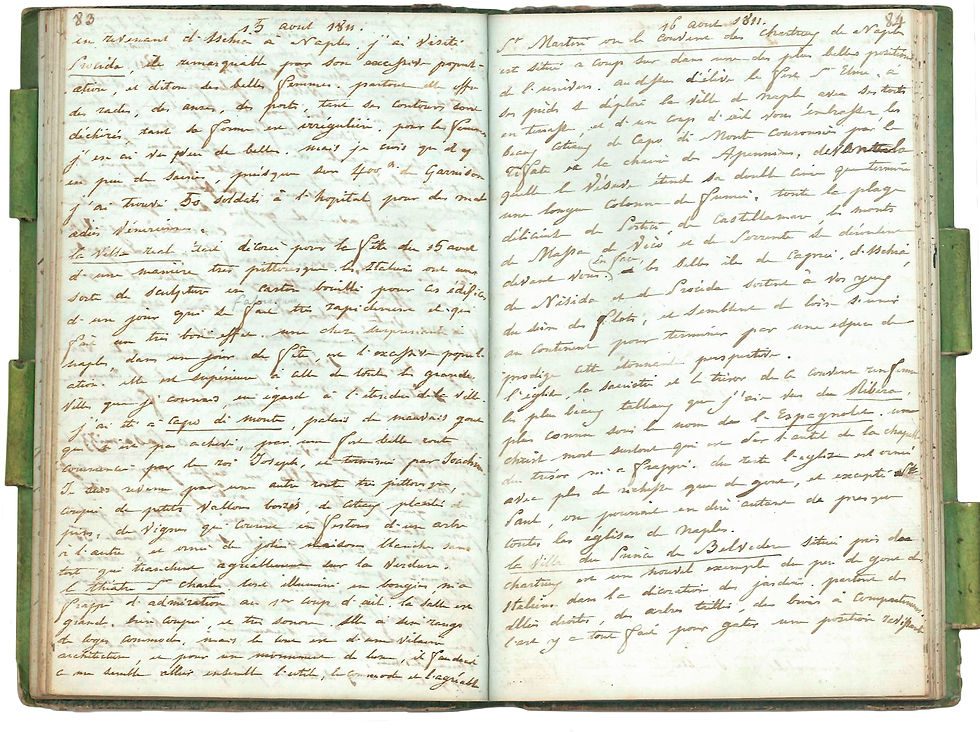 83
15 avril 1811.
en revenant d'Ischia à Naples j'ai visité
Procida, île remarquable par son excessive popul-
ation, et dit on des belles femmes. partout elle offre
des rades, des anses, des ports, tant ses contours sont
déchirés, tant sa forme est irrégulière. pour les femmes
j'en ai vu peu de belles. mais je crois qu'il y
en peu de saines, puisque sur 400 h. de garnison
j'ai trouvé 50 soldats à l'hopital pour des mal
adies vénériennes.
la Villa reale était décorée pour la fête du 15 aout
d'une manière très pittoresque. les statues ont une
sorte de sculpture en carton bouilli pour les édifices
d'un jour qui se fait très rapidement et qui
fait un très bon effet. une chose surprenante à
naples, dans un jour de fête, est l'excessive popul-
ation. elle est supérieure à celle de toutes les grandes
villes que je connais, en égard à l'étendue de la ville.
j'ai été à capo di monte, palais de mauvais gout
qui n'est pas achevé, par une fort belle route
commencée par le roi Joseph, et terminée par Joachim
Je suis revenu par un autre route très pittoresque,
coupée de petits vallons boisés, de coteaux plantés de
pins, de vignes qui courent en festons d'un arbre
à l'autre et ornés de jolies maisons blanches sans
toit qui tranchent agréablement sur la verdure.
le théatre St charles tout illuminé en bougies, m'a
frappé d'admiration au 1er coup d'œil. la salle est
grande. bien coupée, et très sonore. elle a six rangs
de loges commodes, mais le tout est d'une vilaine
architecture, et pour un monument de luxe, il faudrait
a me semble allier ensemble l'utile, le commode et l'agréable
84
16 aout 1811.
St Martin ou le couvent des chartreux de Naples
est situé a coup sur dans une des plus belles positions
de l'univers. au dessus s'élève le fort St Elme. à
ses pieds se déploie la ville de naples avec ses toits
en terrasse, et d'un coup d'œil vous embrassez les
beaux coteaux de Capo di Mont couronnés par le
Tifate et la chaine des Apennins, de
quelle le Vésuve étend sa double cime que termine
une longue colonne de fumée. toute la plage
délicieuse de Portici, de Castellamare, les monts
de Massa de Vico, et de Sorrente se déroulent
devant vous. en face, les belles iles de Capri, d'Ischia,
de Nisida et de Procida sortent à vos yeux
du sein des flots, et semblent de loin s'unir
au continent pour terminer par une espece de
prodige cette étonnante perspective.
l'église, la sacristie et le trésor de ce couvent renferment
les plus beaux tableaux que j'aie vus du Ribera,
plus connu sous le nom de l'Espagnolet. un
christ mort surtout qui est sur l'autel de la chapelle
du trésor m'a frappé. du reste l'église est ornée
avec plus de richesse que de gout, et excepté St
Paul, on pourrait en dire autant de presque
toutes les églises de naples.
la Villa du Prince de Belvedere située près des
chartreux est un nouvel exemple du peu de gout des
Italiens dans la décoration des jardins. partout des
allées droites, des arbres taillés, des buis à compartimens,
l'art y a tout fait pour gater une position ravissante